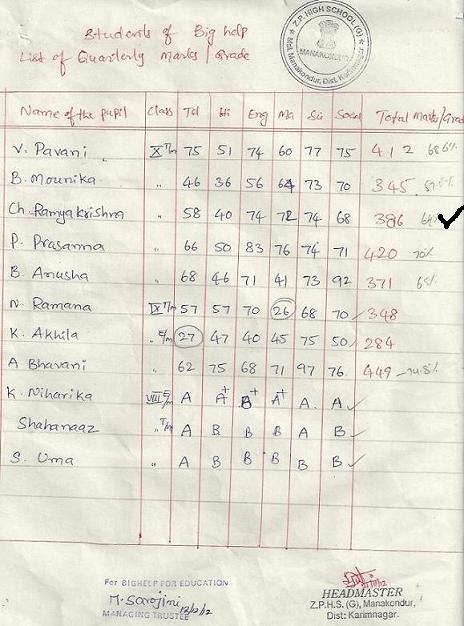 Students of Big help
List of Quarterly Marks / Grade
Z.P. HIGH SCHOOL (G)
MANAKONDUR
Mdl. Manakondur, Dist. Karimnagar.
Name of the pupil Class Tel Hi Eng Ma Sci Social Total Marks/Grade
V. Pavani X T/m 75 51 74 60 77 75 412 68.6%
B. Mounika " 46 36 56 64 73 70 345 57.5%
Ch. Ramyakrishna " 58 40 74 72 74 68 386 64%
P. Prasanna " 66 50 83 76 74 71 420 70%
B. Anusha " 68 46 71 41 73 92 371 65%
N. Ramana IX T/m 57 57 70 26 68 70 348
K. Akhila " E/m 27 47 40 45 75 50 284
A Bhavani " 62 75 68 71 97 76 449 74.8%
K. Niharika VIII E/m A A+ B+ A+ A A
Shahanaaz " T/m A B B B A B
S. Uma " A B B B B B
For BIGHELP FOR EDUCATION
M. Sarojini 13/2/12
MANAGING TRUSTEE
HEADMASTER
Z.P.H.S. (G), Manakondur,
Dist: Karimnagar.